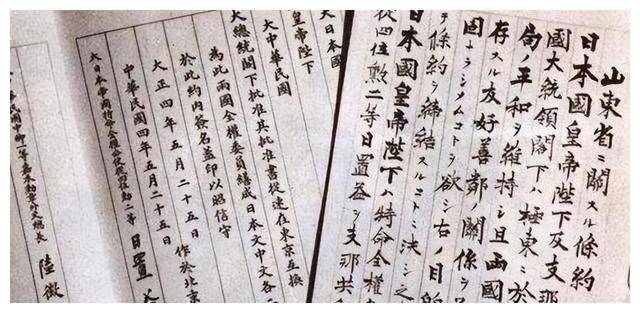 山東省ニ關スル條約
日本國皇帝陛下及支那
國大統領閣下ハ極東ニ於
局ノ平和ヲ維持シ且両國
存スル友好善鄰關係ヲ
固ナラシメムコトヲ欲シ右ノ目的
條約ヲ締結スルコトニ決シ之
日本國皇帝陛下ハ特命全權
從四位勲二等日置益ヲ支那共
大日本國
皇帝陛下
大中華民國
大總統閣下批准其批准書從速在東京互換
為此兩國全權委員繕成日本文中文各二
於此約內簽名蓋印以昭信守
大正四年五月二十五日作於北京
中華民國四年五月二十五日
大日本帝國特命全權公使從四位勲二等 日置
民國中卿一等嘉禾勳章外交總長 陸徵